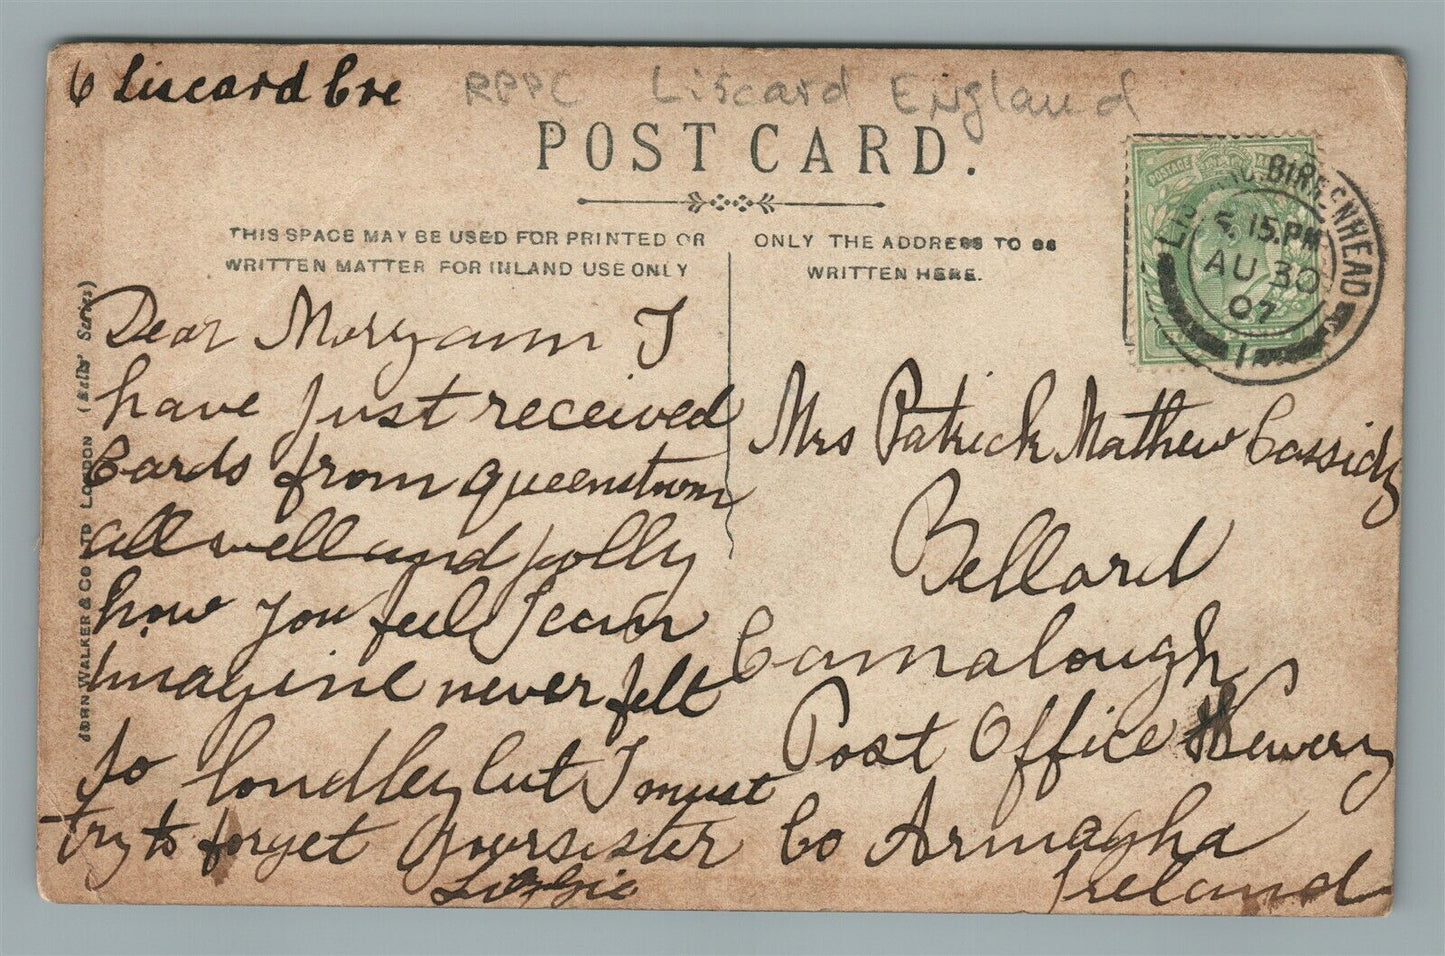 6 Liscard Cre
RPPC Liscard England
POST CARD.
THIS SPACE MAY BE USED FOR PRINTED OR
WRITTEN MATTER FOR INLAND USE ONLY
ONLY THE ADDRESS TO BE
WRITTEN HERE.
POSTAGE
BIRKENHEAD
15.PM
AU 30
07
1
JOHN WALKER & CO LTD LONDON (Bells' Series)
Dear Maryann I
have just received
Cards from queenstown
all well and jolly
how you feel I can
imagine never felt
so londley but I must
try to forget your sister
Lizzie
Mrs Patrick Mathew Cassidy
Bellard
Camalough
Post Office Newery
Co Armagha
Ireland